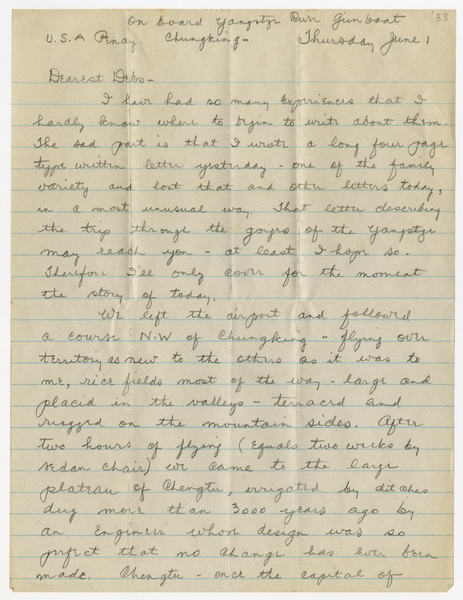 '33
On board Yangstze River Gunboat
U.S.A Panay Chungking - Thursday June 1
Dearest Debs -
I have had so many experiences that I
hardly know where to begin to write about them.
The sad part is that I wrote a long four page
type written letter yesterday - one of the family
variety and lost that and other letters today,
in a most unusual way. That letter describing
the trip through the gorges of the Yangstze
may reach you - at least I hope so.
Therefore I'll only cover for the moment
the story of today.
We left the airport and followed
a course N.W of Chungking - flying over
territory as new to the others as it was to
me, rice fields most of the way - large and
placid in the valleys - terraced and
rugged on the mountain sides. After
two hours of flying (equals two weeks by
sedan chair) we came to the large
plateau of Chengtu, irrigated by ditches
dug more than 3000 years ago by
an Engineer whose design was so
perfect that no change has ever been
made. Chengtu - once the capital of